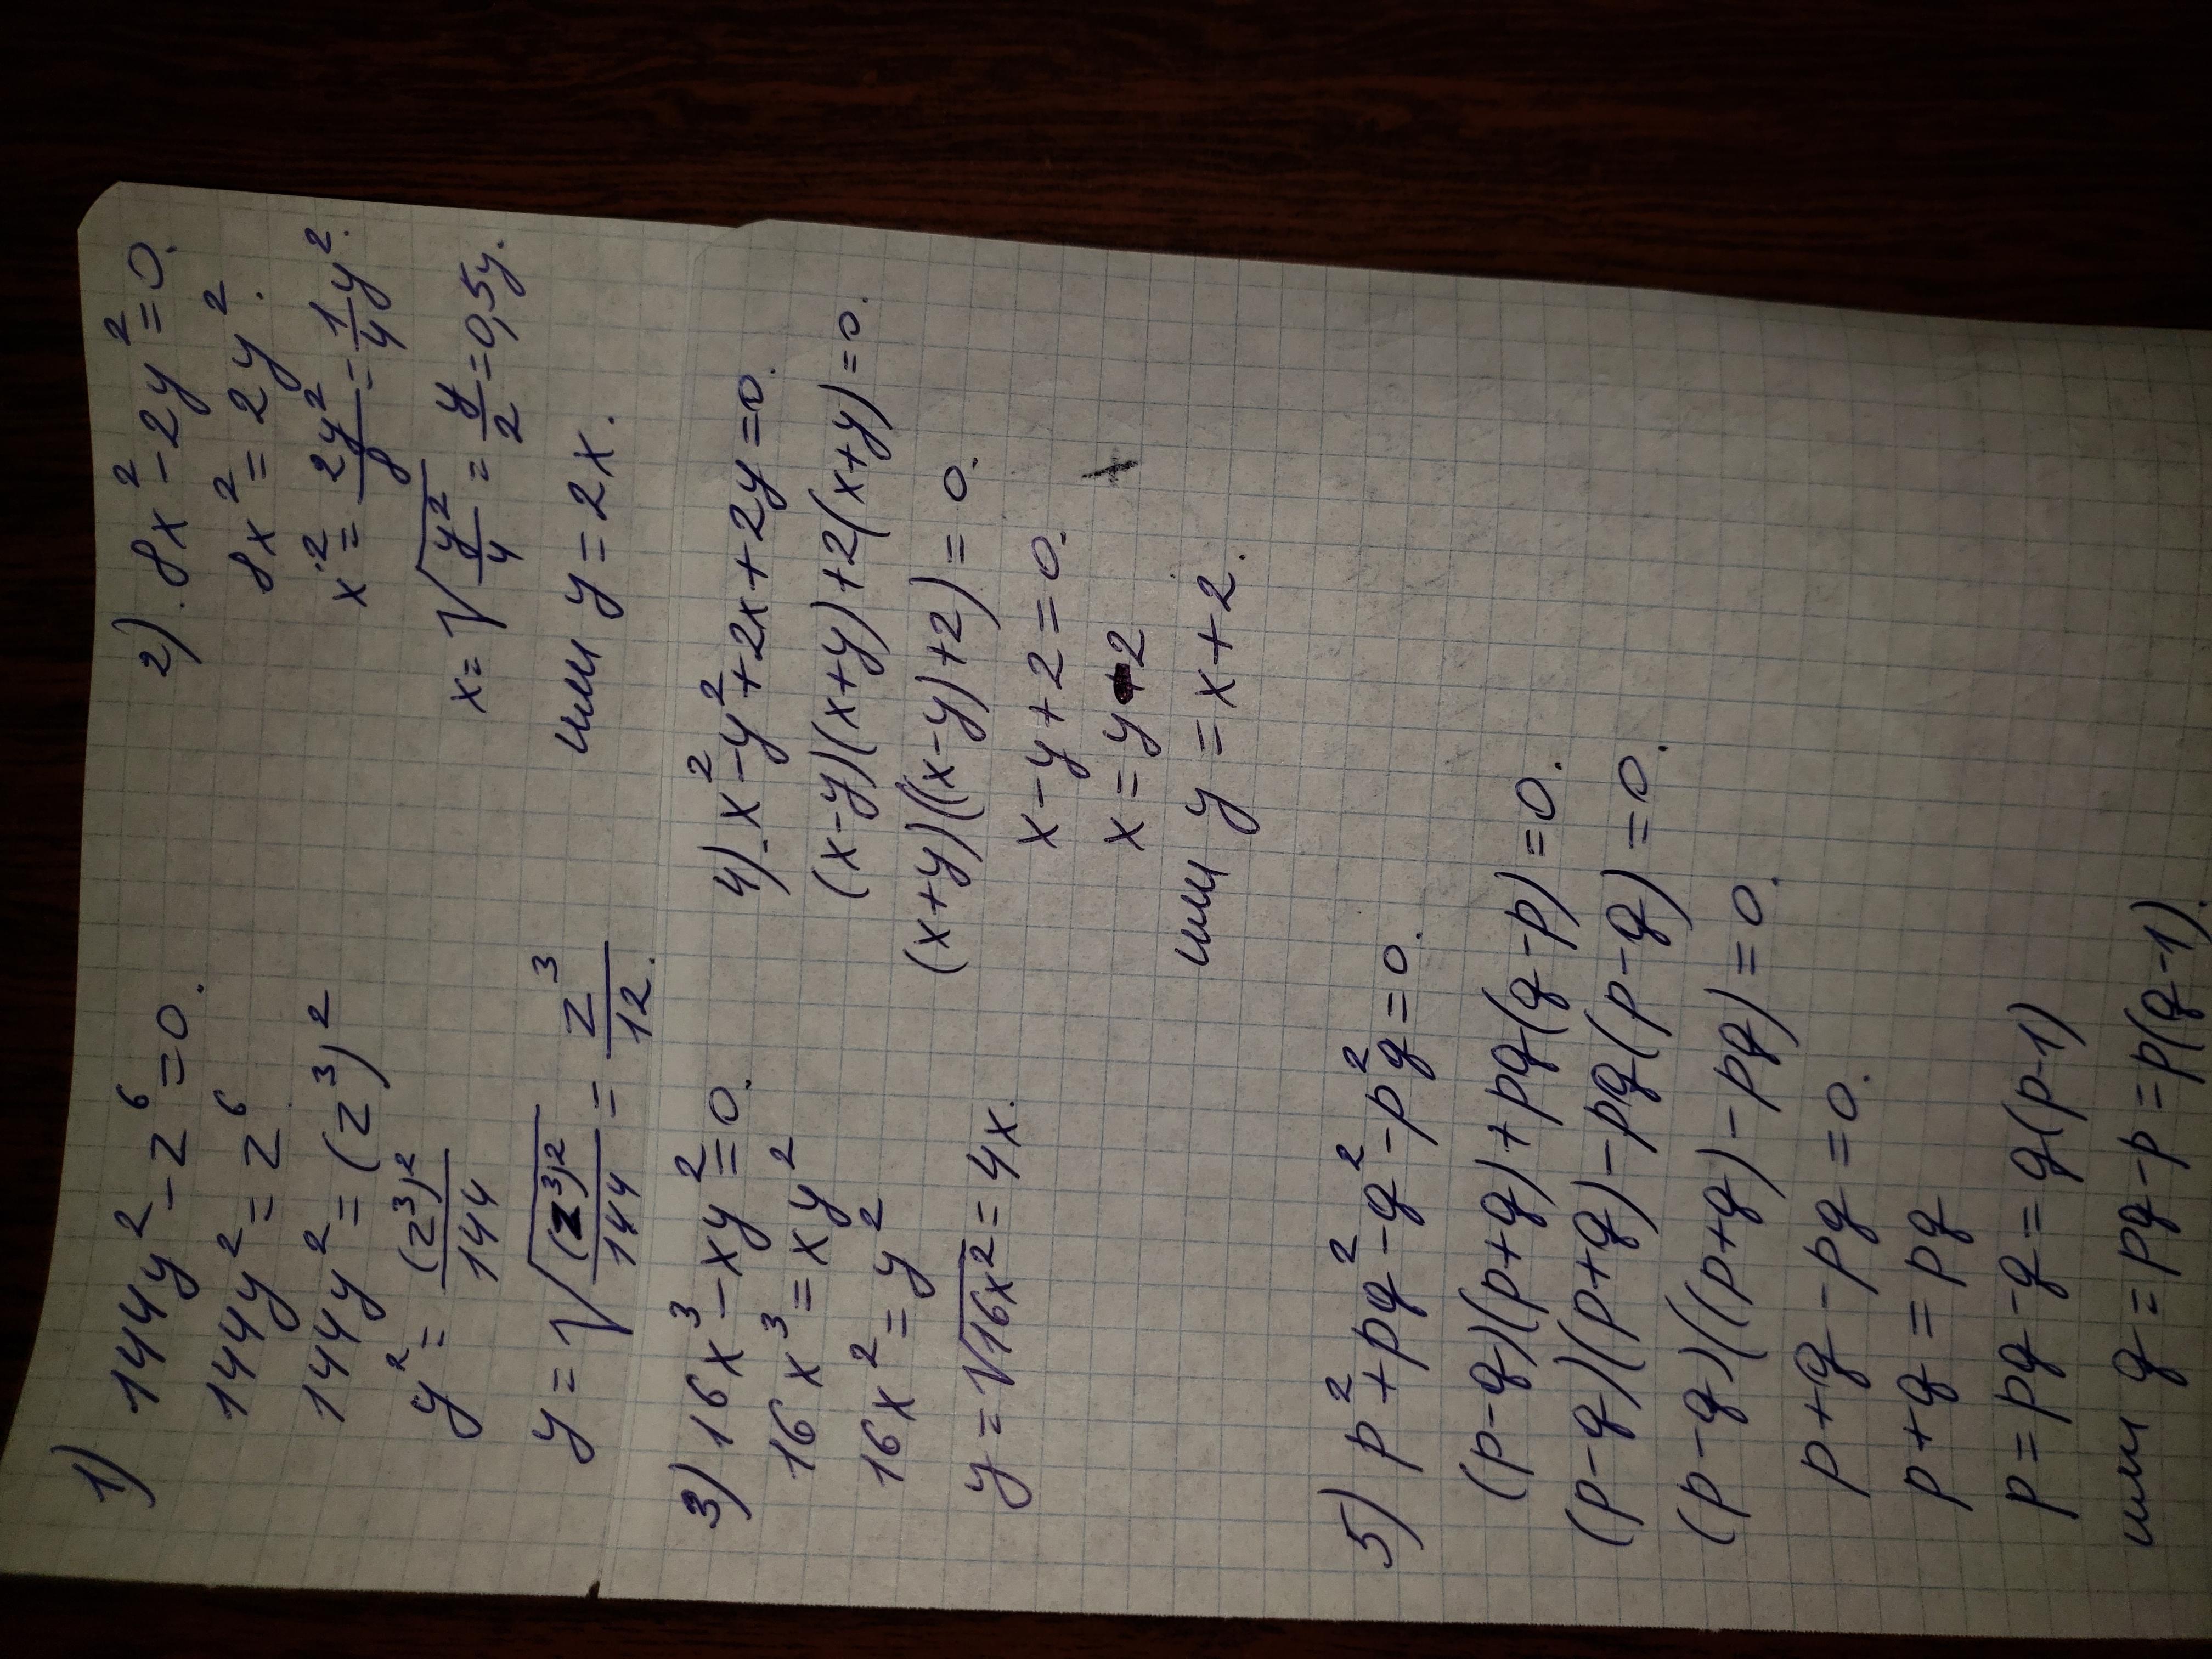 1) 144y² - z⁶ = 0.
144y² = z⁶
144y² = (z³)²
y² = (z³)²/144
y = √((z³)²/144) = z³/12.
2). 8x² - 2y² = 0.
8x² = 2y².
x² = 2y²/8 = 1/4 y².
x = √(y²/4) = y/2 = 0,5y.
или y = 2x.
3) 16x³ - xy² = 0.
16x³ = xy²
16x² = y²
y = √16x² = 4x.
4). x² - y² + 2x + 2y = 0.
(x-y)(x+y) + 2(x+y) = 0.
(x+y)((x-y)+2) = 0.
x - y + 2 = 0.
x = y - 2
или y = x + 2.
5) p² + pq² - q² - p²q = 0.
(p-q)(p+q) + pq(q-p) = 0.
(p-q)(p+q) - pq(p-q) = 0.
(p-q)((p+q) - pq) = 0.
p + q - pq = 0.
p + q = pq
p = pq - q = q(p-1)
или q = pq - p = p(q-1).